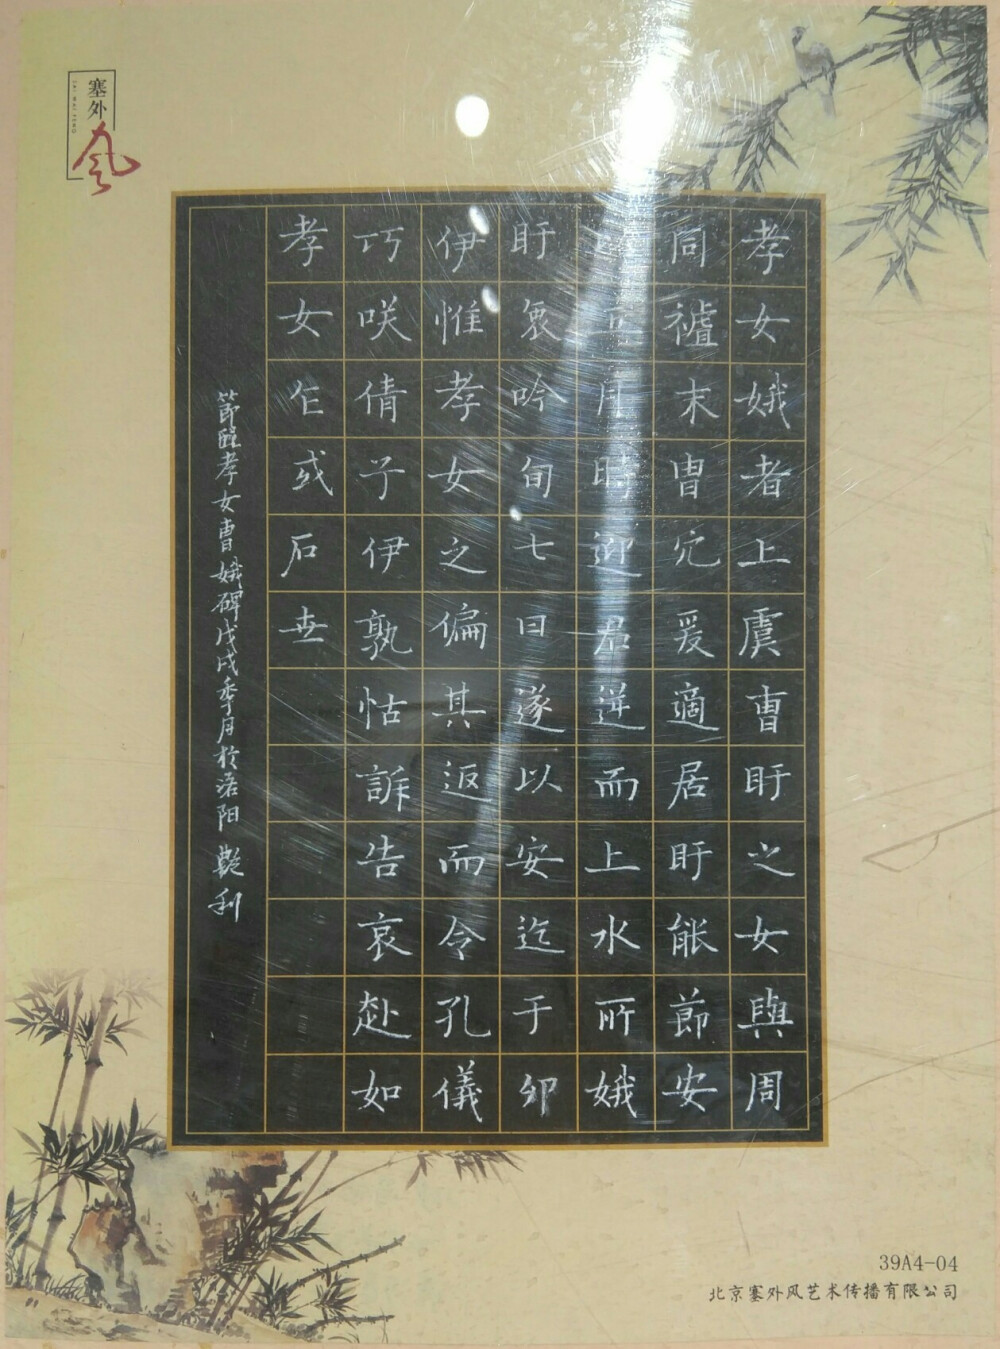 塞外
风
孝女娥者上虞曹盱之女與周
同末冑爰適居盱能節安
五月時迎君逆而上水所娥
盱哀吟旬七日遂以安迄于卯
伊惟孝女之偏其返而令孔儀
巧咲倩子伊孰怙訴告哀赴如
孝女乍或
節臨孝女曹娥碑戊戌季月於洛阳 艷利
39A4-04
北京塞外风艺术传播有限公司